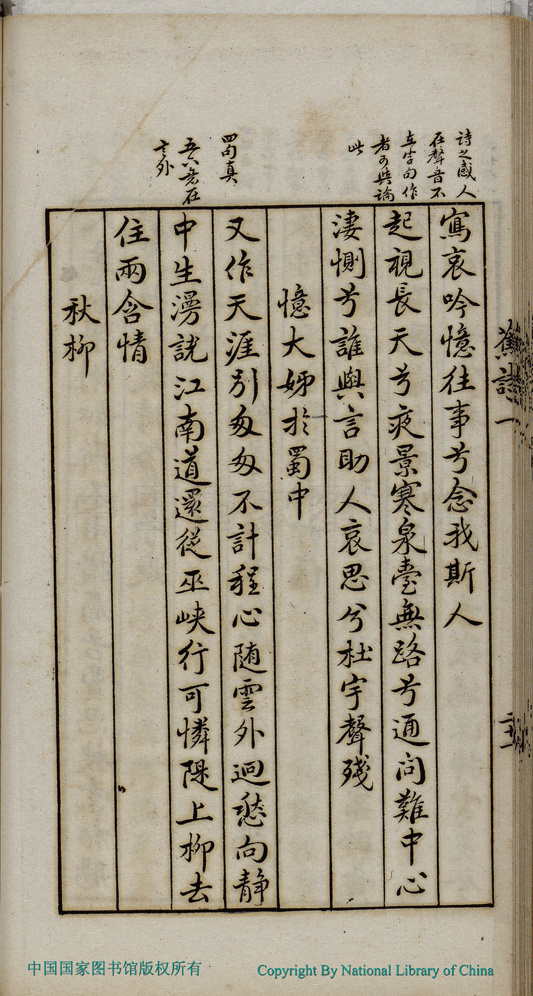 詩之感人
在聲音不
在字句作
者可與論
此
四句真
五六意在
言外
寫哀吟憶往事兮念我斯人
起視長天兮夜景寒泉臺無路兮通問難中心
淒惻兮誰與言助人哀思兮杜宇聲殘
憶大姊於蜀中
又作天涯別匆匆不計程心随雲外迴愁向靜
中生漫說江南道還從巫峽行可憐隄上柳去
住兩含情
秋柳
中国国家图书馆版权所有
Copyright By National Library of China